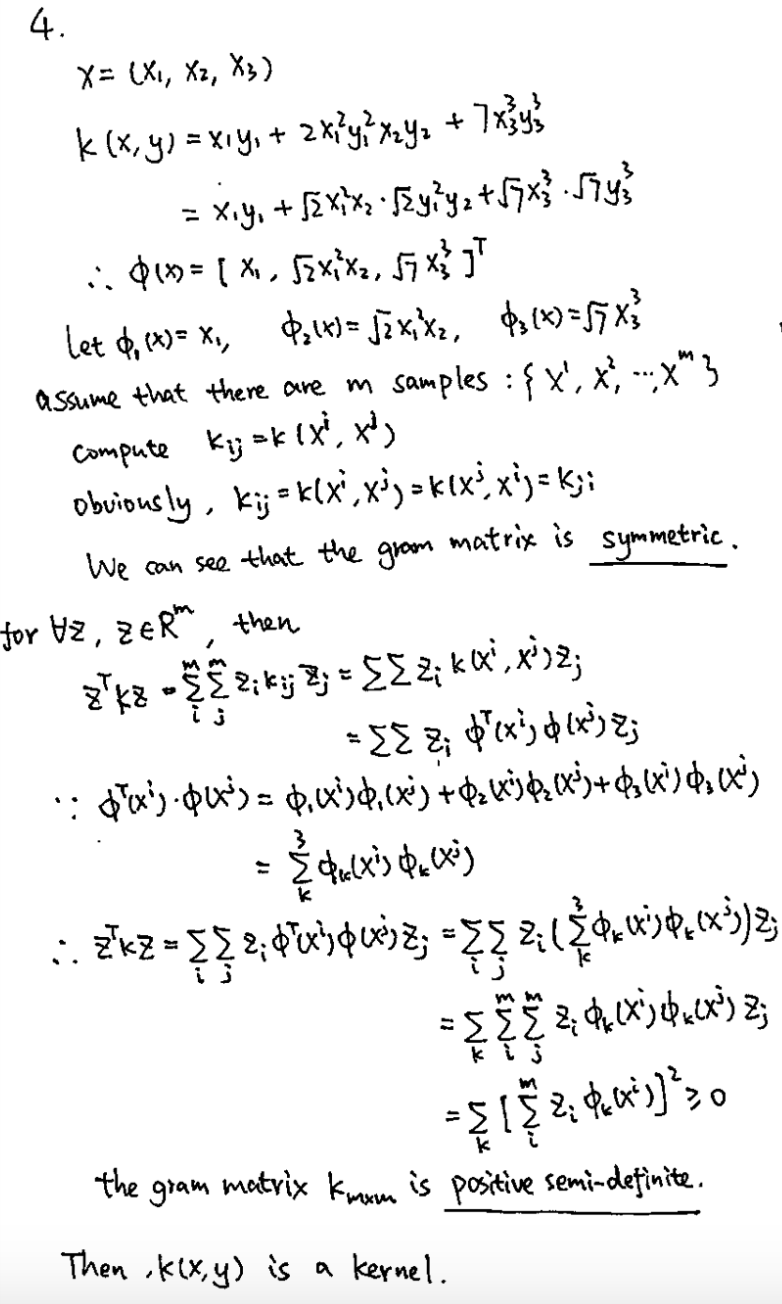 4.
x = (x₁, x₂, x₃)
k(x,y) = x₁y₁ + 2x₁²y₁²x₂y₂ + 7x₃³y₃³
= x₁y₁ + √2x₁²x₂·√2y₁²y₂ + √7x₃³·√7y₃³
∴ ϕ(x) = [x₁, √2x₁²x₂, √7x₃³]ᵀ
Let ϕ₁(x) = x₁, ϕ₂(x) = √2x₁²x₂, ϕ₃(x) = √7x₃³
assume that there are m samples : {x¹, x², ⋯, xᵐ}
compute kᵢⱼ = k(xⁱ, xʲ)
obviously, kᵢⱼ = k(xⁱ, xʲ) = k(xʲ, xⁱ) = kⱼᵢ
We can see that the gram matrix is symmetric.
for ∀z, z∈Rᵐ, then
zᵀkz = ∑ᵢᵐ∑ⱼᵐ zᵢkᵢⱼzⱼ = ∑∑ zᵢ k(xⁱ, xʲ)zⱼ
= ∑∑ zᵢ ϕᵀ(xⁱ)ϕ(xʲ)zⱼ
∵ ϕᵀ(xⁱ)·ϕ(xʲ) = ϕ₁(xⁱ)ϕ₁(xʲ) + ϕ₂(xⁱ)ϕ₂(xʲ) + ϕ₃(xⁱ)ϕ₃(xʲ)
= ∑ₖ³ ϕₖ(xⁱ)ϕₖ(xʲ)
∴ zᵀkz = ∑ᵢ∑ⱼ zᵢϕᵀ(xⁱ)ϕ(xʲ)zⱼ = ∑ᵢ∑ⱼ zᵢ(∑ₖ³ϕₖ(xⁱ)ϕₖ(xʲ))zⱼ
= ∑ₖ∑ᵢᵐ∑ⱼᵐ zᵢϕₖ(xⁱ)ϕₖ(xʲ)zⱼ
= ∑ₖ[∑ᵢᵐ zᵢϕₖ(xⁱ)]² ⩾ 0
the gram matrix kₘₓₘ is positive semi-definite.
Then, k(x,y) is a kernel.